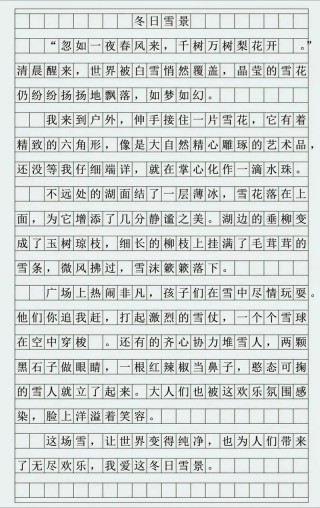 冬日雪景
“忽如一夜春风来，千树万树梨花开。”
清晨醒来，世界被白雪悄然覆盖，晶莹的雪花
仍纷纷扬扬地飘落，如梦如幻。
我来到户外，伸手接住一片雪花，它有着
精致的六角形，像是大自然精心雕琢的艺术品，
还没等我仔细端详，就在掌心化作一滴水珠。
不远处的湖面结了一层薄冰，雪花落在上
面，为它增添了几分静谧之美。湖边的垂柳变
成了玉树琼枝，细长的柳枝上挂满了毛茸茸的
雪条，微风拂过，雪沫簌簌落下。
广场上热闹非凡，孩子们在雪中尽情玩耍。
他们你追我赶，打起激烈的雪仗，一个个雪球
在空中穿梭。还有的齐心协力堆雪人，两颗
黑石子做眼睛，一根红辣椒当鼻子，憨态可掬
的雪人就立了起来。大人们也被这欢乐氛围感
染，脸上洋溢着笑容。
这场雪，让世界变得纯净，也为人们带来
了无尽欢乐，我爱这冬日雪景。